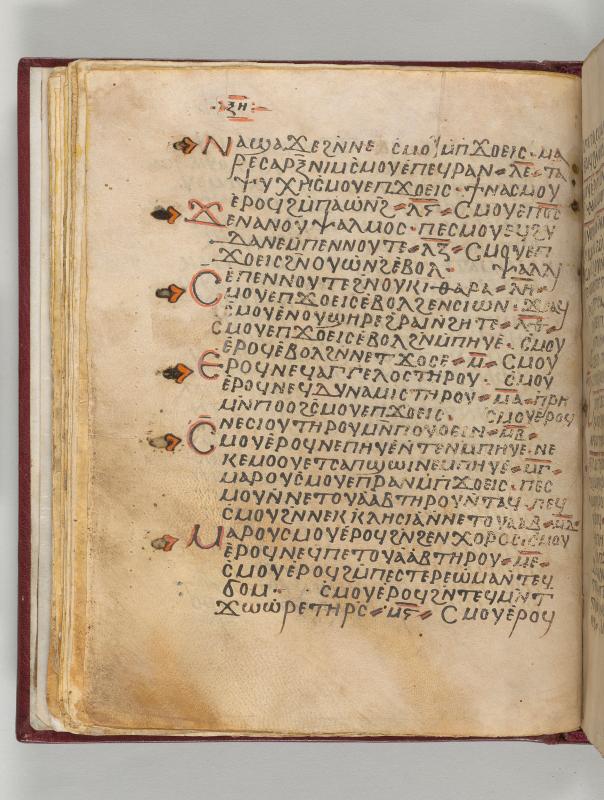 ⲝⲏ
ⲛⲁϣⲁϫⲉϩⲛⲛⲉ ⲥⲙⲟⲩⲙⲡϫⲟⲉⲓⲥ· ⲙⲁ
ⲣⲉⲥⲁⲣⲝⲛⲓⲙⲥⲙⲟⲩⲉⲡⲉϥⲣⲁⲛ ⲗⲉ̅ ⲧⲁ
ⲯⲩⲭⲏⲥⲙⲟⲩⲉⲡϫⲟⲉⲓⲥ· ϯⲛⲁⲥⲙⲟⲩ
ⲉⲣⲟϥϩⲙⲡⲁⲱⲛϩ ⲗⲋ̅ ⲥⲙⲟⲩⲉⲡⲟ̅ⲥ̅
ϫⲉⲛⲁⲛⲟⲩⲯⲁⲗⲙⲟⲥ· ⲡⲉⲥⲙⲟⲩⲉϥϩⲩ
ⲇⲁⲛⲉⲙⲡⲉⲛⲛⲟⲩⲧⲉ ⲗⲍ̅ ⲥⲙⲟⲩⲉⲡ
ϫⲟⲉⲓⲥϩⲛⲟⲩⲱⲛϩⲉⲃⲟⲗ· ⲯⲁⲗⲗⲓ
ⲉⲡⲉⲛⲛⲟⲩⲧⲉϩⲛⲟⲩⲕⲓⲑⲁⲣⲁ ⲗⲏ̅
ⲥⲙⲟⲩⲉⲡϫⲟⲉⲓⲥⲉⲃⲟⲗϩⲉⲛⲥⲓⲱⲛ· ϫⲓⲁϥ
ⲥⲙⲟⲩⲉⲛⲟⲩϣⲏⲣⲉϩⲣⲁⲓⲛϩⲏⲧⲉ ⲗⲑ̅
ⲥⲙⲟⲩⲉⲡϫⲟⲉⲓⲥⲉⲃⲟⲗϩⲛⲙⲡⲏⲩⲉ· ⲥⲙⲟⲩ
ⲉⲣⲟϥⲉⲃⲟⲗϩⲛⲛⲉⲧϫⲟⲥⲉ ⲙ̅ ⲥⲙⲟⲩ
ⲉⲣⲟϥⲛⲉϥⲁⲅⲅⲉⲗⲟⲥⲧⲏⲣⲟⲩ· ⲥⲙⲟⲩ
ⲉⲣⲟϥⲛⲉϥⲇⲩⲛⲁⲙⲓⲥⲧⲏⲣⲟⲩ ⲙⲁ̅ ⲡⲣⲏ
ⲙⲛⲡⲟⲟϩⲥⲙⲟⲩⲉⲡϫⲟⲉⲓⲥ· ⲥⲙⲟⲩⲉⲣⲟϥ
ⲛⲉⲥⲓⲟⲩⲧⲏⲣⲟⲩⲙⲛⲡⲟⲩⲟⲉⲓⲛ ⲙⲃ̅
ⲥⲙⲟⲩⲉⲣⲟϥⲛⲉⲡⲏⲩⲉⲛⲧⲉⲛⲙⲡⲏⲩⲉ· ⲛⲉ
ⲕⲉⲙⲟⲟⲩⲉⲧⲥⲁⲡϣⲱⲓⲛⲉⲙⲡⲏⲩⲉ ⲙⲅ̅
ⲙⲁⲣⲟⲩⲥⲙⲟⲩⲉⲡⲣⲁⲛⲙⲡϫⲟⲉⲓⲥ· ⲡⲉⲥ
ⲙⲟⲩⲛⲛⲉⲧⲟⲩⲁⲁⲃⲧⲏⲣⲟⲩⲛⲧⲁϥ· ⲡⲉϥ
ⲥⲙⲟⲩϩⲛⲛⲉⲕⲕⲗⲏⲥⲓⲁⲛⲛⲉⲧⲟⲩⲁⲁⲃ ⲙⲇ̅
ⲙⲁⲣⲟⲩⲥⲙⲟⲩⲉⲣⲟϥϩⲛϩⲉⲛⲭⲟⲣⲟⲥ· ⲥⲙⲟⲩ
ⲉⲣⲟϥⲛⲉϥⲡⲉⲧⲟⲩⲁⲁⲃⲧⲏⲣⲟⲩ ⲙⲉ̅
ⲥⲙⲟⲩⲉⲣⲟϥϩⲙⲡⲉⲥⲧⲉⲣⲉⲱⲙⲁⲛⲧⲉϥ
ϭⲟⲙ· ⲥⲙⲟⲩⲉⲣⲟϥϩⲛⲧⲉϥⲙⲛⲧ
ϫⲱⲱⲣⲉⲧⲏⲣⲥ ⲙⲋ̅ ⲥⲙⲟⲩⲉⲣⲟϥ